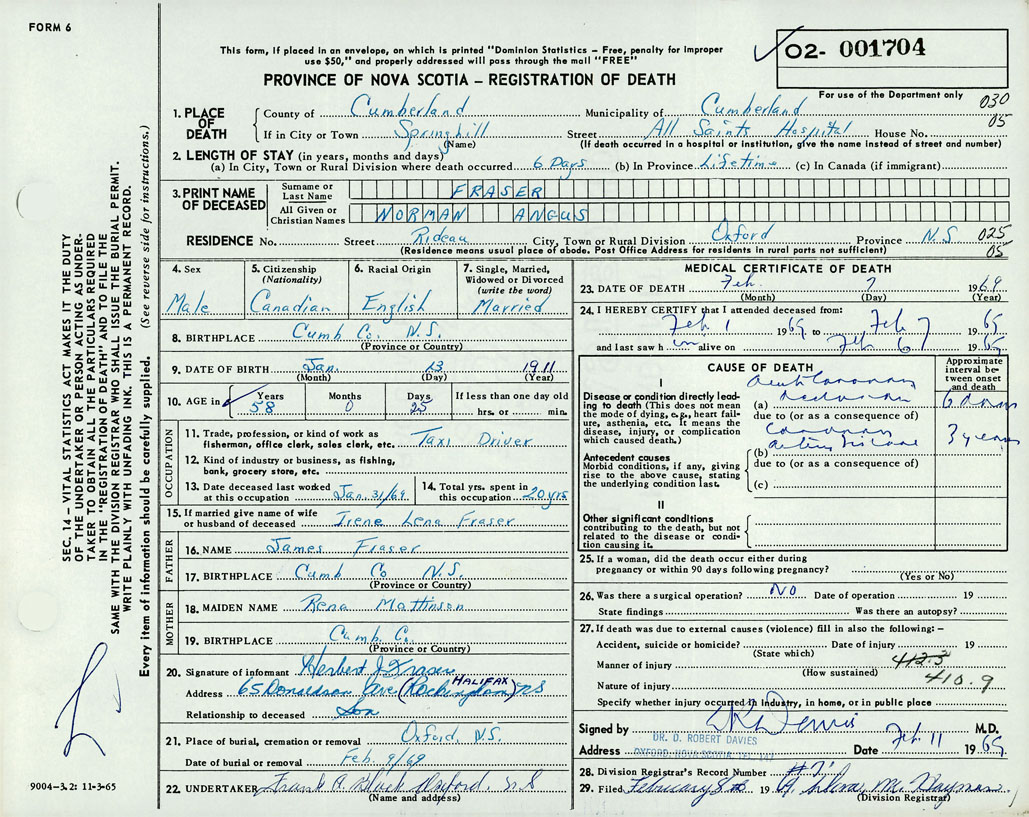 FORM 6
This form, if placed in an envelope, on which is printed "Dominion Statistics – Free, penalty for improper
use $50," and properly addressed will pass through the mail "FREE"
O2- 001704
PROVINCE OF NOVA SCOTIA – REGISTRATION OF DEATH
For use of the Department only
030
05
1. PLACE OF DEATH
County of Cumberland Municipality of Cumberland
If in City or Town Springhill Street All Saints Hospital House No.
(Name) (If death occurred in a hospital or institution, give the name instead of street and number)
2. LENGTH OF STAY (in years, months and days)
(a) In City, Town or Rural Division where death occurred 6 Days (b) In Province Lifetime (c) In Canada (if immigrant)
3. PRINT NAME OF DECEASED
Surname or Last Name FRASER
All Given or Christian Names NORMAN ANGUS
RESIDENCE No. Street Rideau City, Town or Rural Division Oxford Province N.S 025
05
(Residence means usual place of abode. Post Office Address for residents in rural parts not sufficient)
4. Sex Male
5. Citizenship (Nationality) Canadian
6. Racial Origin English
7. Single, Married, Widowed or Divorced (write the word) Married
8. BIRTHPLACE Cumb Co. N.S.
(Province or Country)
9. DATE OF BIRTH Jan. 13 1911
(Month) (Day) (Year)
10. AGE in Years 58 Months 0 Days 25 If less than one day old hrs. or min.
OCCUPATION
11. Trade, profession, or kind of work as fisherman, office clerk, sales clerk, etc. Taxi Driver
12. Kind of industry or business, as fishing, bank, grocery store, etc.
13. Date deceased last worked at this occupation Jan. 31/69
14. Total yrs. spent in this occupation 20 yrs
15. If married give name of wife or husband of deceased Irene Lena Fraser
FATHER
16. NAME James Fraser
17. BIRTHPLACE Cumb Co N.S.
(Province or Country)
MOTHER
18. MAIDEN NAME Rena Mattinson
19. BIRTHPLACE Cumb. Co.
(Province or Country)
20. Signature of informant Herbert J Fraser
Address 65 Donaldson Ave (Rockingham) HALIFAX NS
Relationship to deceased Son
21. Place of burial, cremation or removal Oxford, N.S.
Date of burial or removal Feb. 9/69
22. UNDERTAKER Frank A. Black Oxford, N S
(Name and address)
MEDICAL CERTIFICATE OF DEATH
23. DATE OF DEATH Feb. 7 1969
(Month) (Day) (Year)
24. I HEREBY CERTIFY that I attended deceased from:
Feb 1 1969 to Feb 7 1969
and last saw him alive on Feb 6 1969
CAUSE OF DEATH
Approximate interval between onset and death
I
Disease or condition directly leading to death (This does not mean the mode of dying, e.g., heart failure, asthenia, etc. It means the disease, injury, or complication which caused death.)
(a) 6 days
due to (or as a consequence of)
(b) 3 years
due to (or as a consequence of)
(c)
Antecedent causes
Morbid conditions, if any, giving rise to the above cause, stating the underlying condition last.
II
Other significant conditions
contributing to the death, but not related to the disease or condition causing it.
25. If a woman, did the death occur either during
pregnancy or within 90 days following pregnancy?
(Yes or No)
26. Was there a surgical operation? NO Date of operation 19
State findings Was there an autopsy?
27. If death was due to external causes (violence) fill in also the following: –
Accident, suicide or homicide? Date of injury 19
(State which)
412.3
Manner of injury
(How sustained)
410.9
Nature of injury
Specify whether injury occurred in Industry, in home, or in public place
Signed by M.D.
DR. D. ROBERT DAVIES
Address OXFORD, NOVA SCOTIA Date Feb 11 1969
28. Division Registrar's Record Number #7
29. Filed February 8 19
(Division Registrar)
SEC. 14 – VITAL STATISTICS ACT MAKES IT THE DUTY
OF THE UNDERTAKER OR PERSON ACTING AS UNDER-
TAKER TO OBTAIN ALL THE PARTICULARS REQUIRED
IN THE "REGISTRATION OF DEATH" AND TO FILE THE
SAME WITH THE DIVISION REGISTRAR WHO SHALL ISSUE THE BURIAL PERMIT.
WRITE PLAINLY WITH UNFADING INK. THIS IS A PERMANENT RECORD.
Every item of information should be carefully supplied. (See reverse side for instructions.)
9004-3.2: 11-3-65